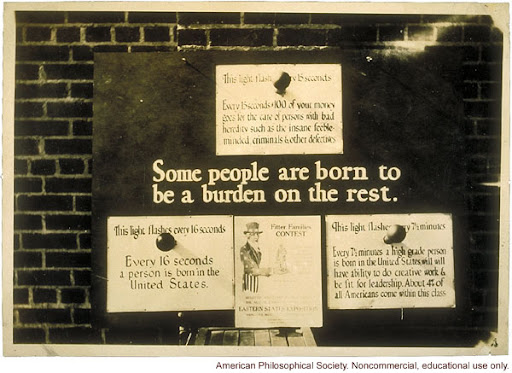 This light flashes every 15 seconds
Every 15 seconds $100 of your money
goes for the care of persons with bad
heredity such as the insane feeble-
minded, criminals & other defectives
Some people are born to
be a burden on the rest.
This light flashes every 16 seconds
Every 16 seconds
a person is born in the
United States.
Fitter Families
CONTEST
EASTERN STATES EXPOSITION
This light flashes every 7½ minutes
Every 7½ minutes a high grade person
is born in the United States, will
have ability to do creative work &
be fit for leadership. About 4% of
all Americans come within this class
American Philosophical Society. Noncommercial, educational use only.